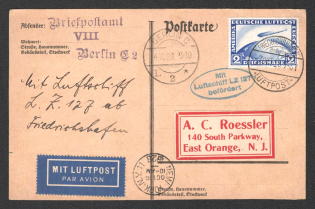 Absender:
Briefpostamt
VIII
Berlin C 2
Wohnort:
Straße, Hausnummer,
Gebäudeteil, Stockwerk
Postkarte
DEUTSCHE LUFTPOST
2 REICHSMARK 2
LUFTPOST
Mit
Luftschiff LZ 127
befördert
Mit Luftschiff
L. Z. 127 ab
Friedrichshafen
A. C. Roessler
140 South Parkway,
East Orange, N. J.
MIT LUFTPOST
PAR AVION
Straße, Hausnummer,
Gebäudeteil, Stockwerk